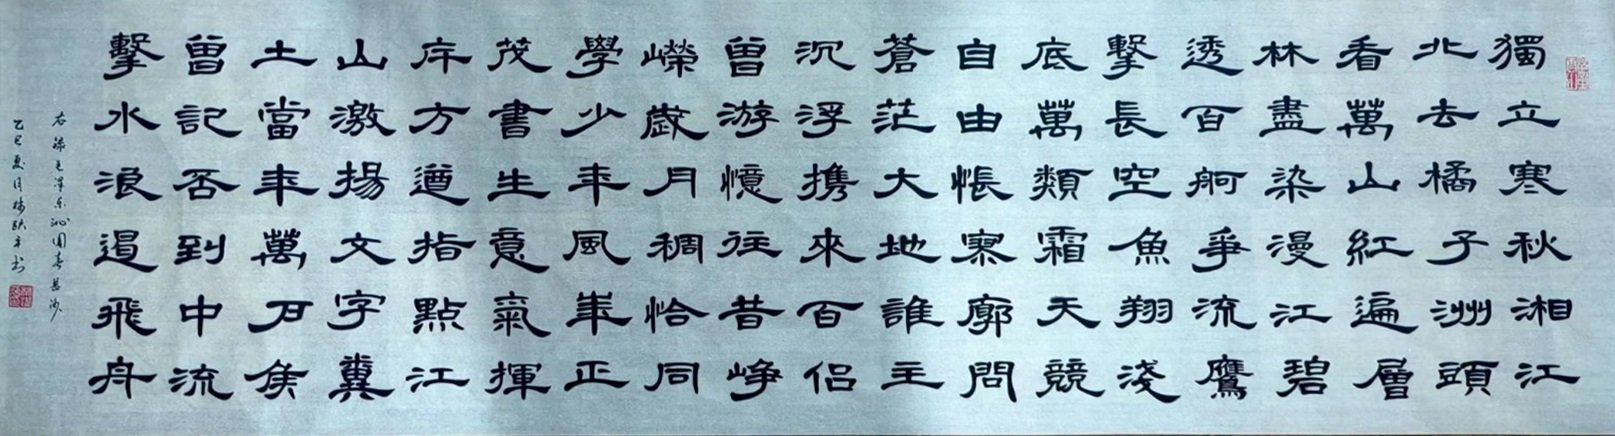 獨立寒秋湘江
北去橘子洲頭
看萬山紅遍層
林盡染漫江碧
透百舸爭流鷹
擊長空魚翔淺
底萬類霜天競
自由悵寥廓問
蒼茫大地誰主
沉浮携來百侣
曾游憶往昔崢
嶸歲月稠恰同
學少年風華正
茂書生意氣揮
斥方遒指點江
山激揚文字糞
土當年萬户侯
曾記否到中流
擊水浪遏飛舟
右錄毛澤东沁園春長沙
乙巳夏月